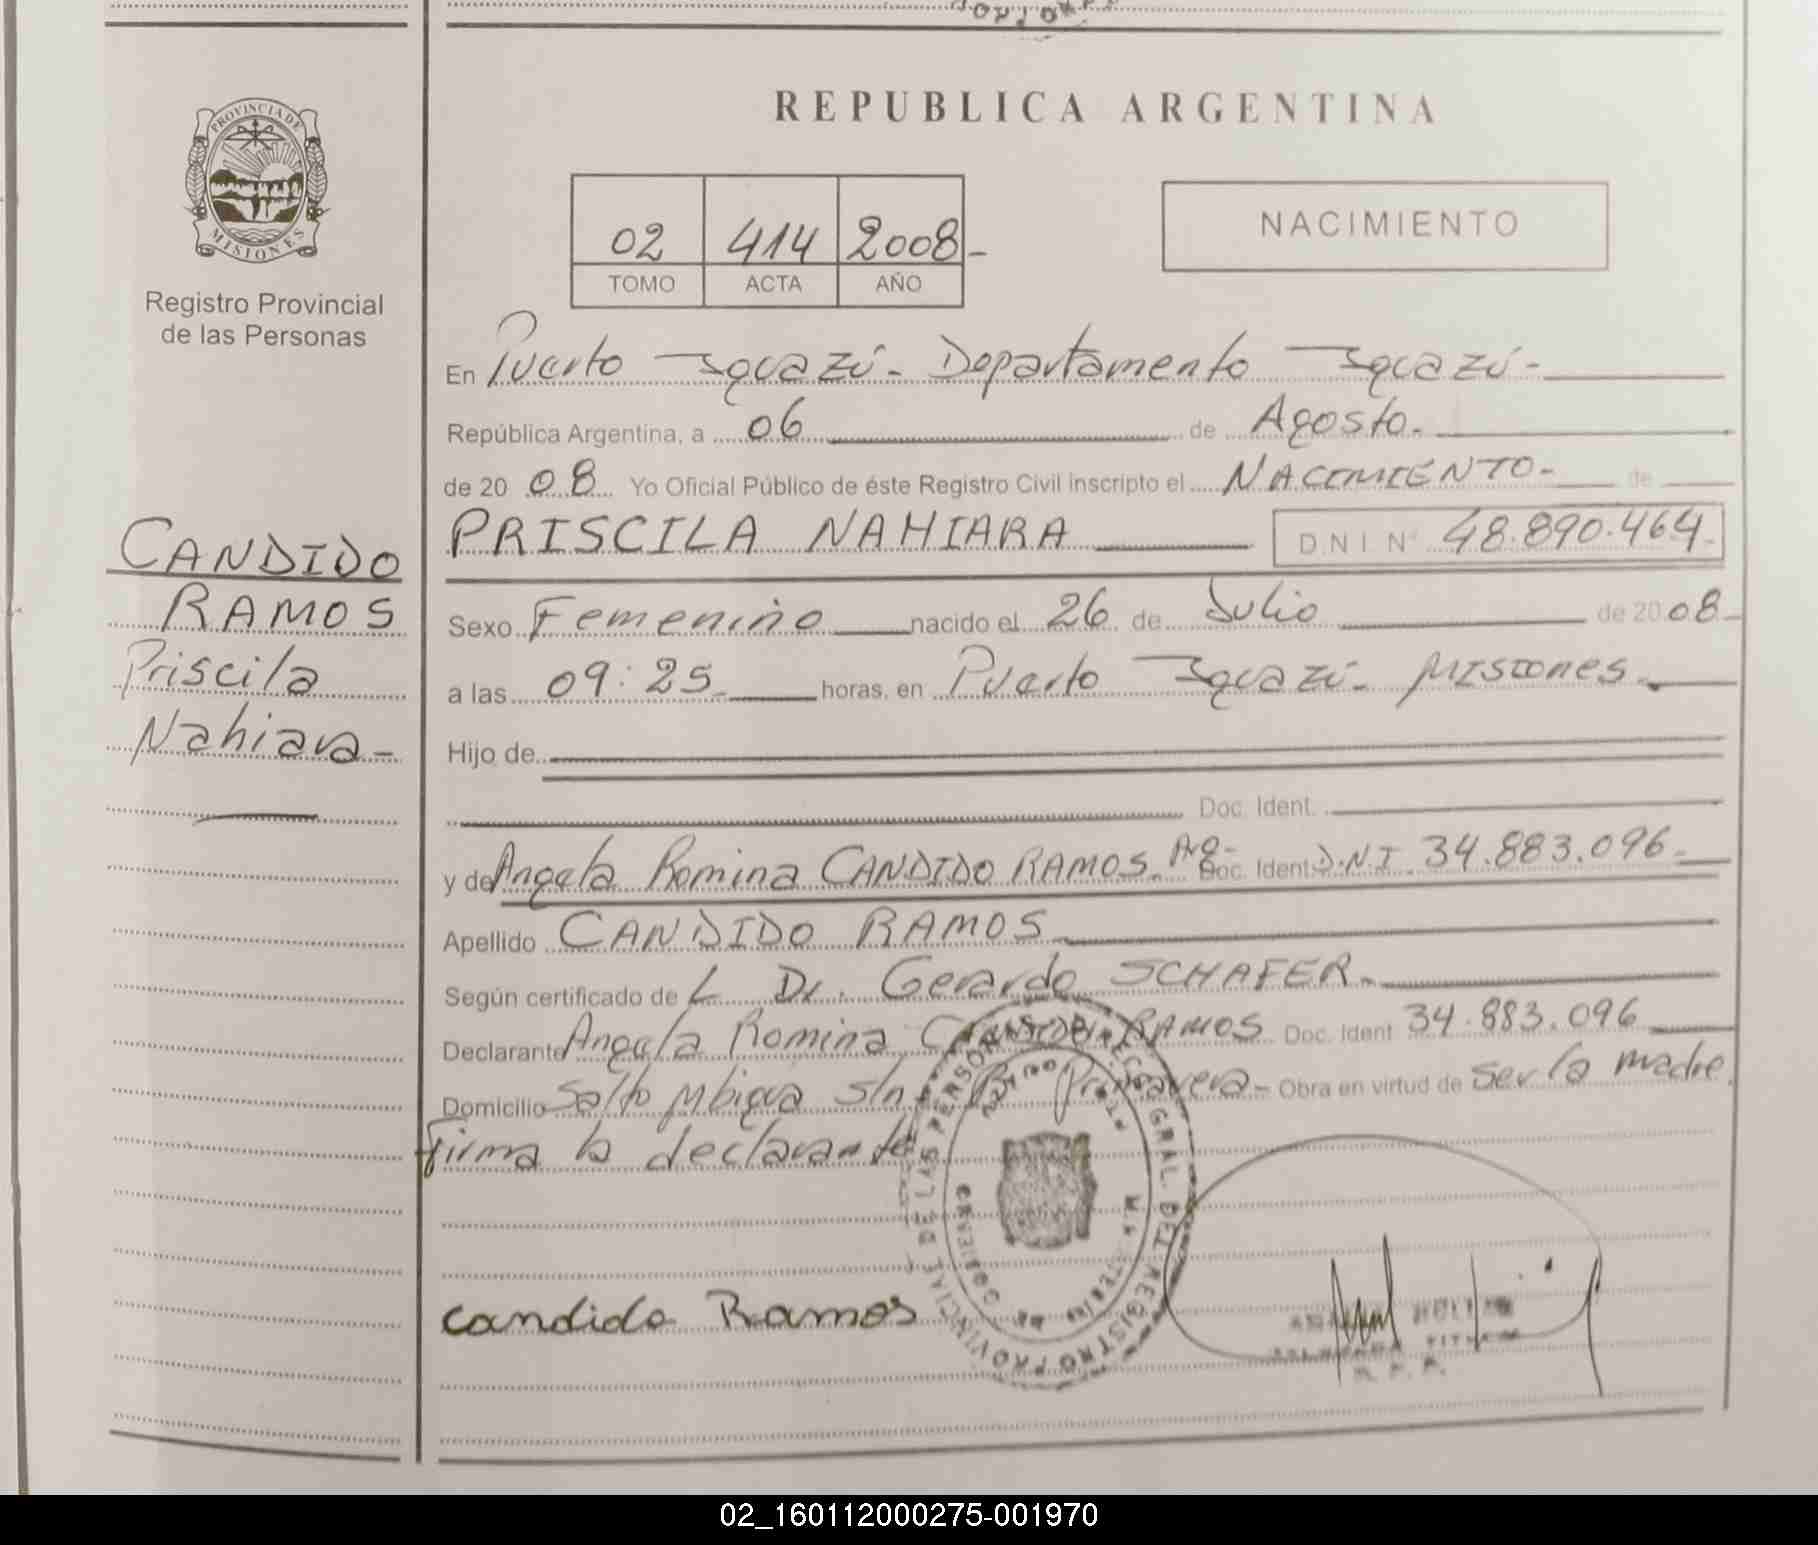 REPUBLICA ARGENTINA
PROVINCIA DE
MISIONES
Registro Provincial
de las Personas
02 414 2008-
TOMO ACTA AÑO
NACIMIENTO
En Puerto Iguazú- Departamento Iguazú-
República Argentina, a 06 de Agosto.
de 20 08 Yo Oficial Público de éste Registro Civil inscripto el NACIMIENTO- de
PRISCILA NAHIARA DNI Nº 48.890.464-
CANDIDO
RAMOS
Priscila
Nahiara-
Sexo Femenino nacido el 26 de Julio de 20 08-
a las 09:25- horas, en Puerto Iguazú- MISIONES-
Hijo de
Doc. Ident.
y de Angela Romina CANDIDO RAMOS- Doc. Ident. D.N.I. 34.883.096-
Apellido CANDIDO RAMOS
Según certificado de L Dr. Gerardo SCHAFER-
Declarante Angela Romina CANDIDO RAMOS Doc. Ident 34.883.096
Domicilio Salto Mbigua s/n- Primavera- Obra en virtud de ser la madre.
Firma la declarante
candido Ramos
R. P. P.
02_160112000275-001970